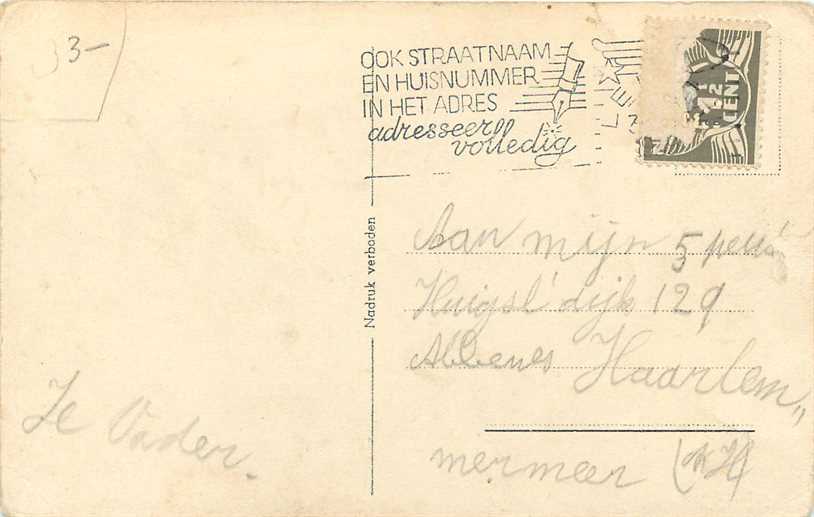 3-
OOK STRAATNAAM
EN HUISNUMMER
IN HET ADRES
adresseer
volledig
1½
CENT
Nadruk verboden
Aan mijn 5
Huigsl' dijk 129
Abbenes Haarlem,,
mermeer (NH)
Je Vader.